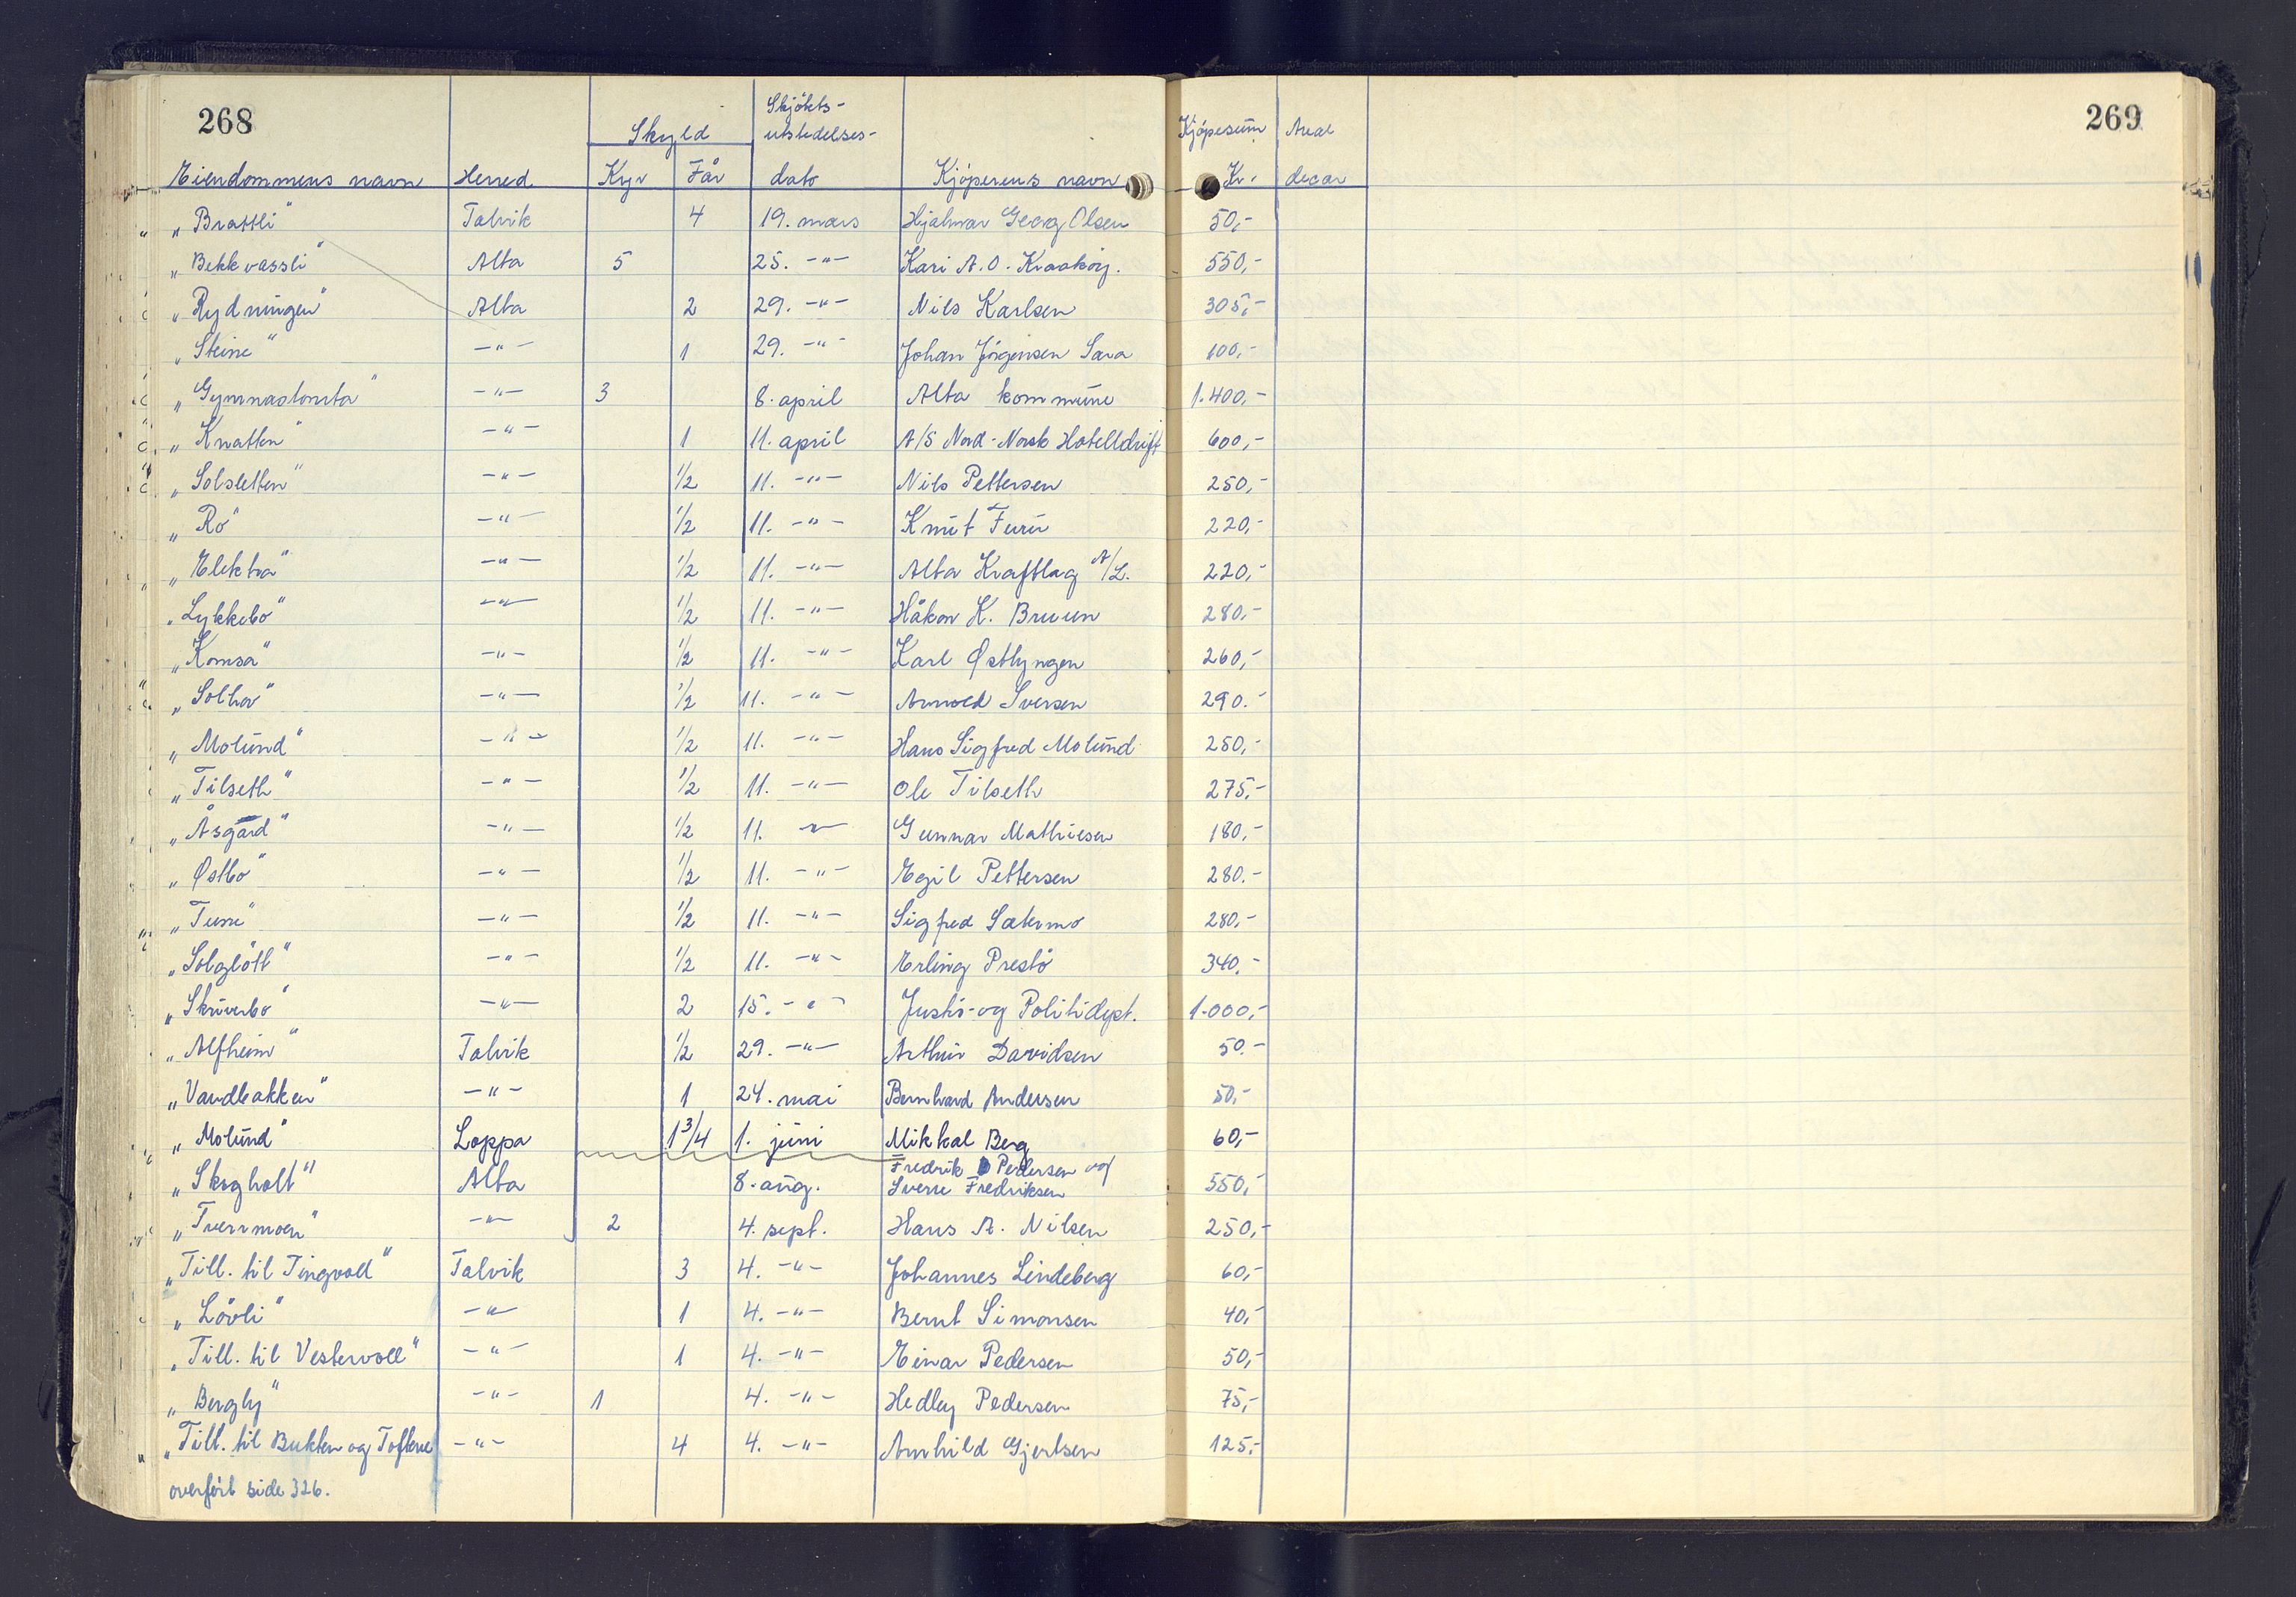 268
269
Skjöts-
Skyld utstedelses- Kjöpesum Areal
Eiendommens navn Herred Kyr Får dato Kjöperens navn Kr. decar
„Brattli" Talvik 4 19. mars Hjalmar Georg Olsen 50,-
„Bekkvassli" Alta 5 25. -"- Kari A.O. 550,-
„Rydningen" Alta 2 29. -"- Nils Karlsen 305,-
„Steine" -"- 1 29. -"- Johan Jörgensen Sara 100,-
„Gymnastomta" -"- 3 8. april Alta kommune 1.400,-
„Knatten" -"- 1 11. april A/S Nord-Norsk Hotelldrift 600,-
„Solsletten" -"- 1/2 11. -"- Nils Pettersen 250,-
„Ro" -"- 1/2 11. -"- Knut Furu 220,-
„Elektra" -"- 1/2 11. -"- Alta Kraftlag A/L. 220,-
„Lykkebo" -"- 1/2 11. -"- Håkon K. Bruun 280,-
„Komsa" -"- 1/2 11. -"- Karl Østlyngen 260,-
„Solhov" -"- 1/2 11. -"- Arnold Iversen 290.-
„Molund" -"- 1/2 11. -"- Hans Sigfred Molund 250,-
„Tilseth" -"- 1/2 11. -"- Ole Tilseth 275,-
„Åsgård" -"- 1/2 11. -"- Gunnar Mathiesen 180,-
„Østbo" -"- 1/2 11. -"- Egil Pettersen 280.-
„Tusse" -"- 1/2 11. -"- Sigfred Sætermo 280,-
„Solglött" -"- 1/2 11. -"- Erling Prestö 340,-
„Skriverbo" -"- 2 15. -"- Justis- og Politidept. 1.000,-
„Alfheim" Talvik 1/2 29. -"- Arthur Davidsen 50.-
„Vandbakken" -"- 1 24. mai Bernhard Andersen 50,-
„Molund" Loppa 1 3/4 1. juni Mikkal Berg 60,-
„Skogholt" Alta 8. aug. Fredrik Pedersen og
Sverre Fredriksen 550,-
„Tverrmoen" -"- 2 4. sept. Hans A. Nilsen 250,-
„Till. til Tingvoll" Talvik 3 4. -"- Johannes Lindeberg 60,-
„Lövli" -"- 1 4. -"- Bernt Simonsen 40,-
„Till. til Vestervoll" -"- 1 4. -"- Einar Pedersen 50,-
„Bergly" -"- 1 4. -"- Hedley Pedersen 75,-
„Till. til Bukten og Toftene -"- 4 4. -"- Arnhild Gjertsen 125,-
overfört side 326.